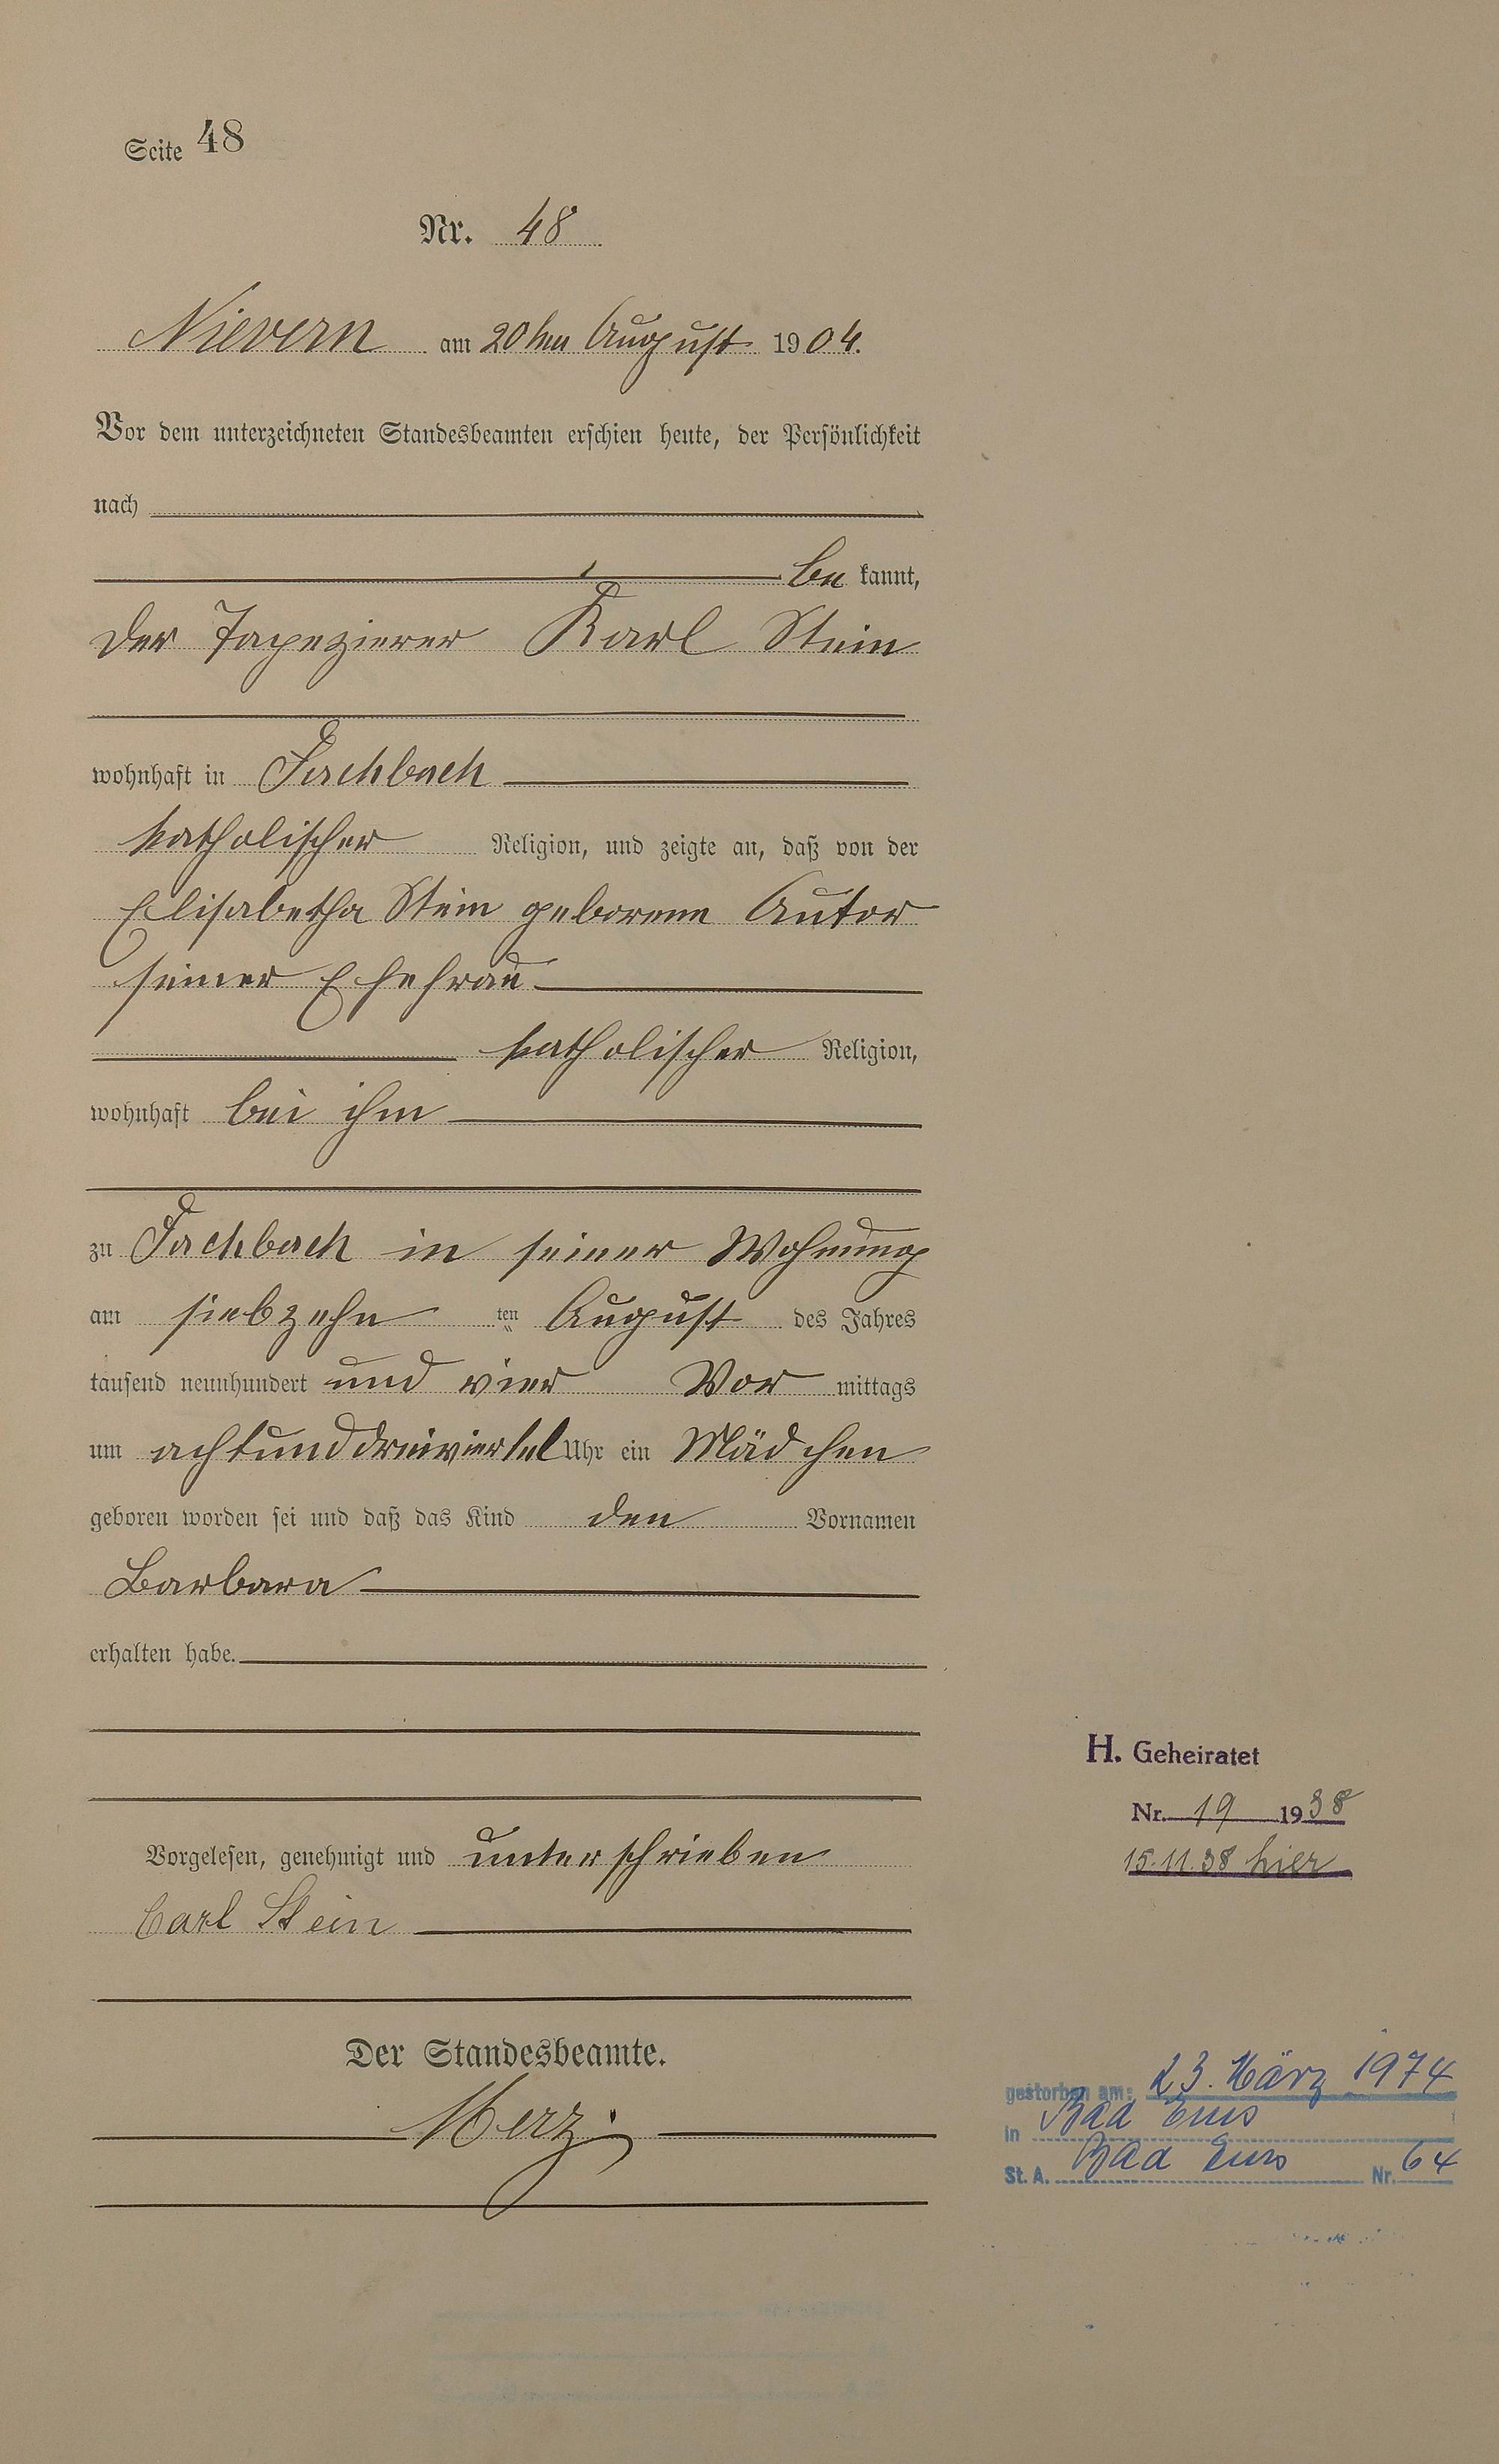 Seite 48
Nr. 48
Nievern am 20ten August 1904.
Vor dem unterzeichneten Standesbeamten erschien heute, der Persönlichkeit
nach
be kannt,
der Tapezierer Karl Stein
wohnhaft in Fachbach
katholischer Religion, und zeigte an, daß von der
Elisabetha Stein geborene Autor
seiner Ehefrau
katholischer Religion,
wohnhaft bei ihm
zu Fachbach in seiner Wohnung
am siebzehn ten August des Jahres
tausend neunhundert und vier Vor mittags
um achtunddreiviertel Uhr ein Mädchen
geboren worden sei und daß das Kind den Vornamen
Barbara
erhalten habe.
Vorgelesen, genehmigt und unterschrieben
Carl Stein
Der Standesbeamte.
Merz
H. Geheiratet
Nr. 19 1938
15.11.38 hier
gestorben am: 23. März 1974
in Bad Ems
St. A. Bad Ems Nr. 64